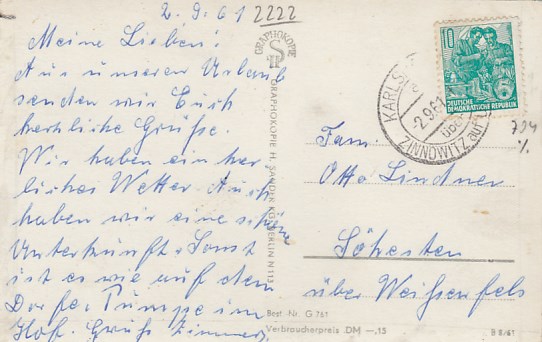 2.9.61 2222
Meine Lieben!
Aus unserem Urlaub
senden wir Euch
herzliche Grüße.
Wir haben ein herr
liches Wetter. Auch
haben wir eine schöne
Unterkunft. Sonst
ist es wie auf dem
Dorfe. Pumpe im
Hof. Gruß Zimmer
GRAPHOKOPIE
H S
GRAPHOKOPIE H. SANDER KG BERLIN N 113
10
DEUTSCHE
DEMOKRATISCHE REPUBLIK
KARLS
2.9.61
ZINNOWITZ auf
über
794
Fam.
Otto Lindner
Söhesten
über Weißenfels
Best. Nr. G 761
Verbraucherpreis DM —.15
B 8/61